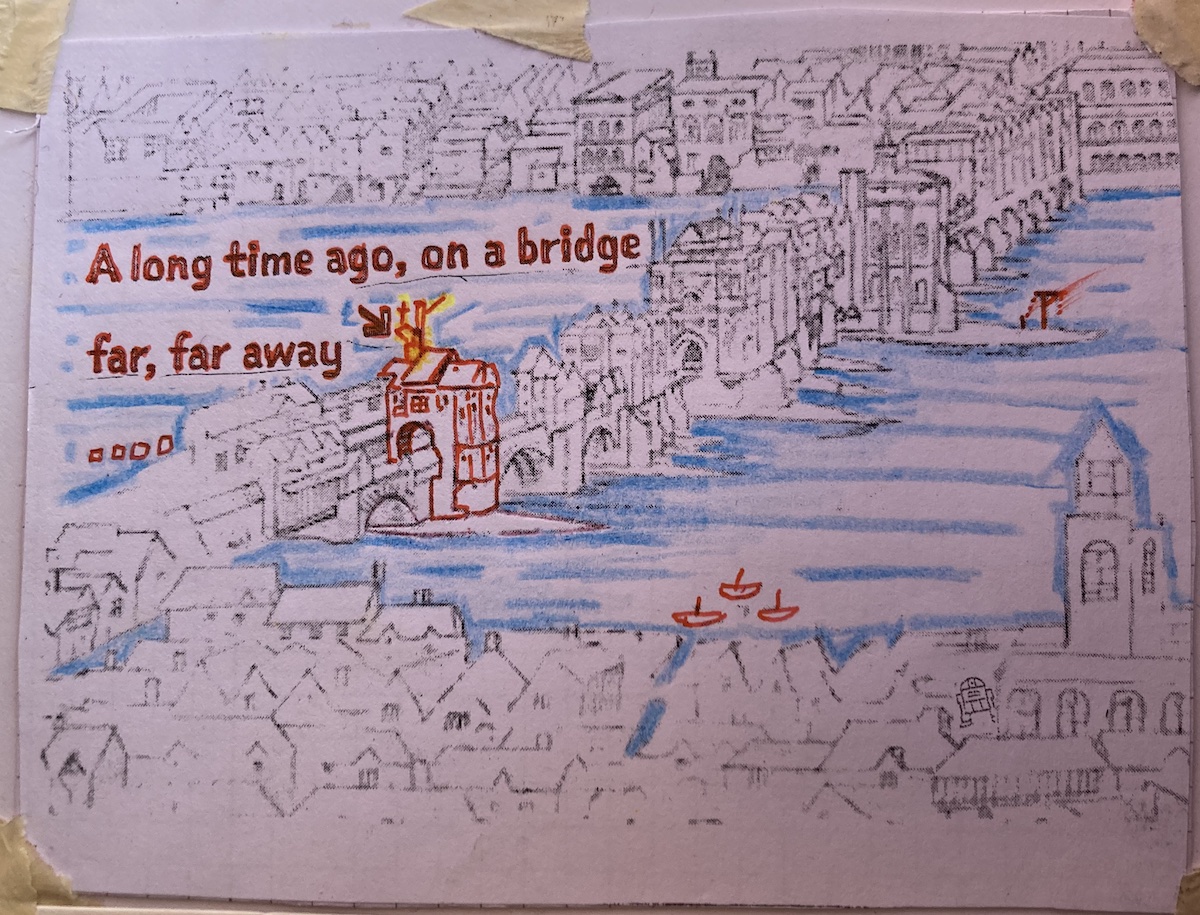 A long time ago, on a bridge
far, far away
....